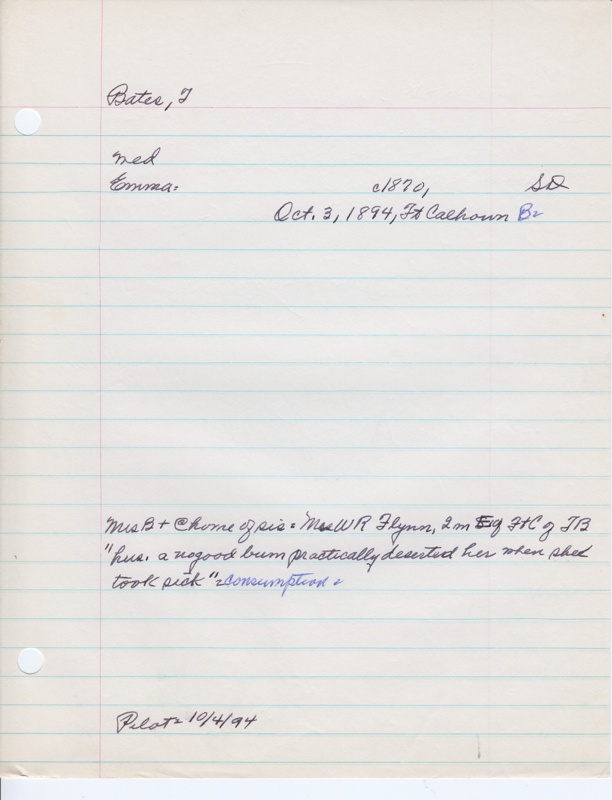 Bates, T
med
Emma: c1870, SD
Oct. 3, 1894, Ft Calhoun Br
Mrs B + @ home of sis: Mrs W R Flynn, 2 m E of Ft C of TB
"hus. a nogood bum practically deserted her when shed
took sick" = consumption
Pilot = 10/4/94